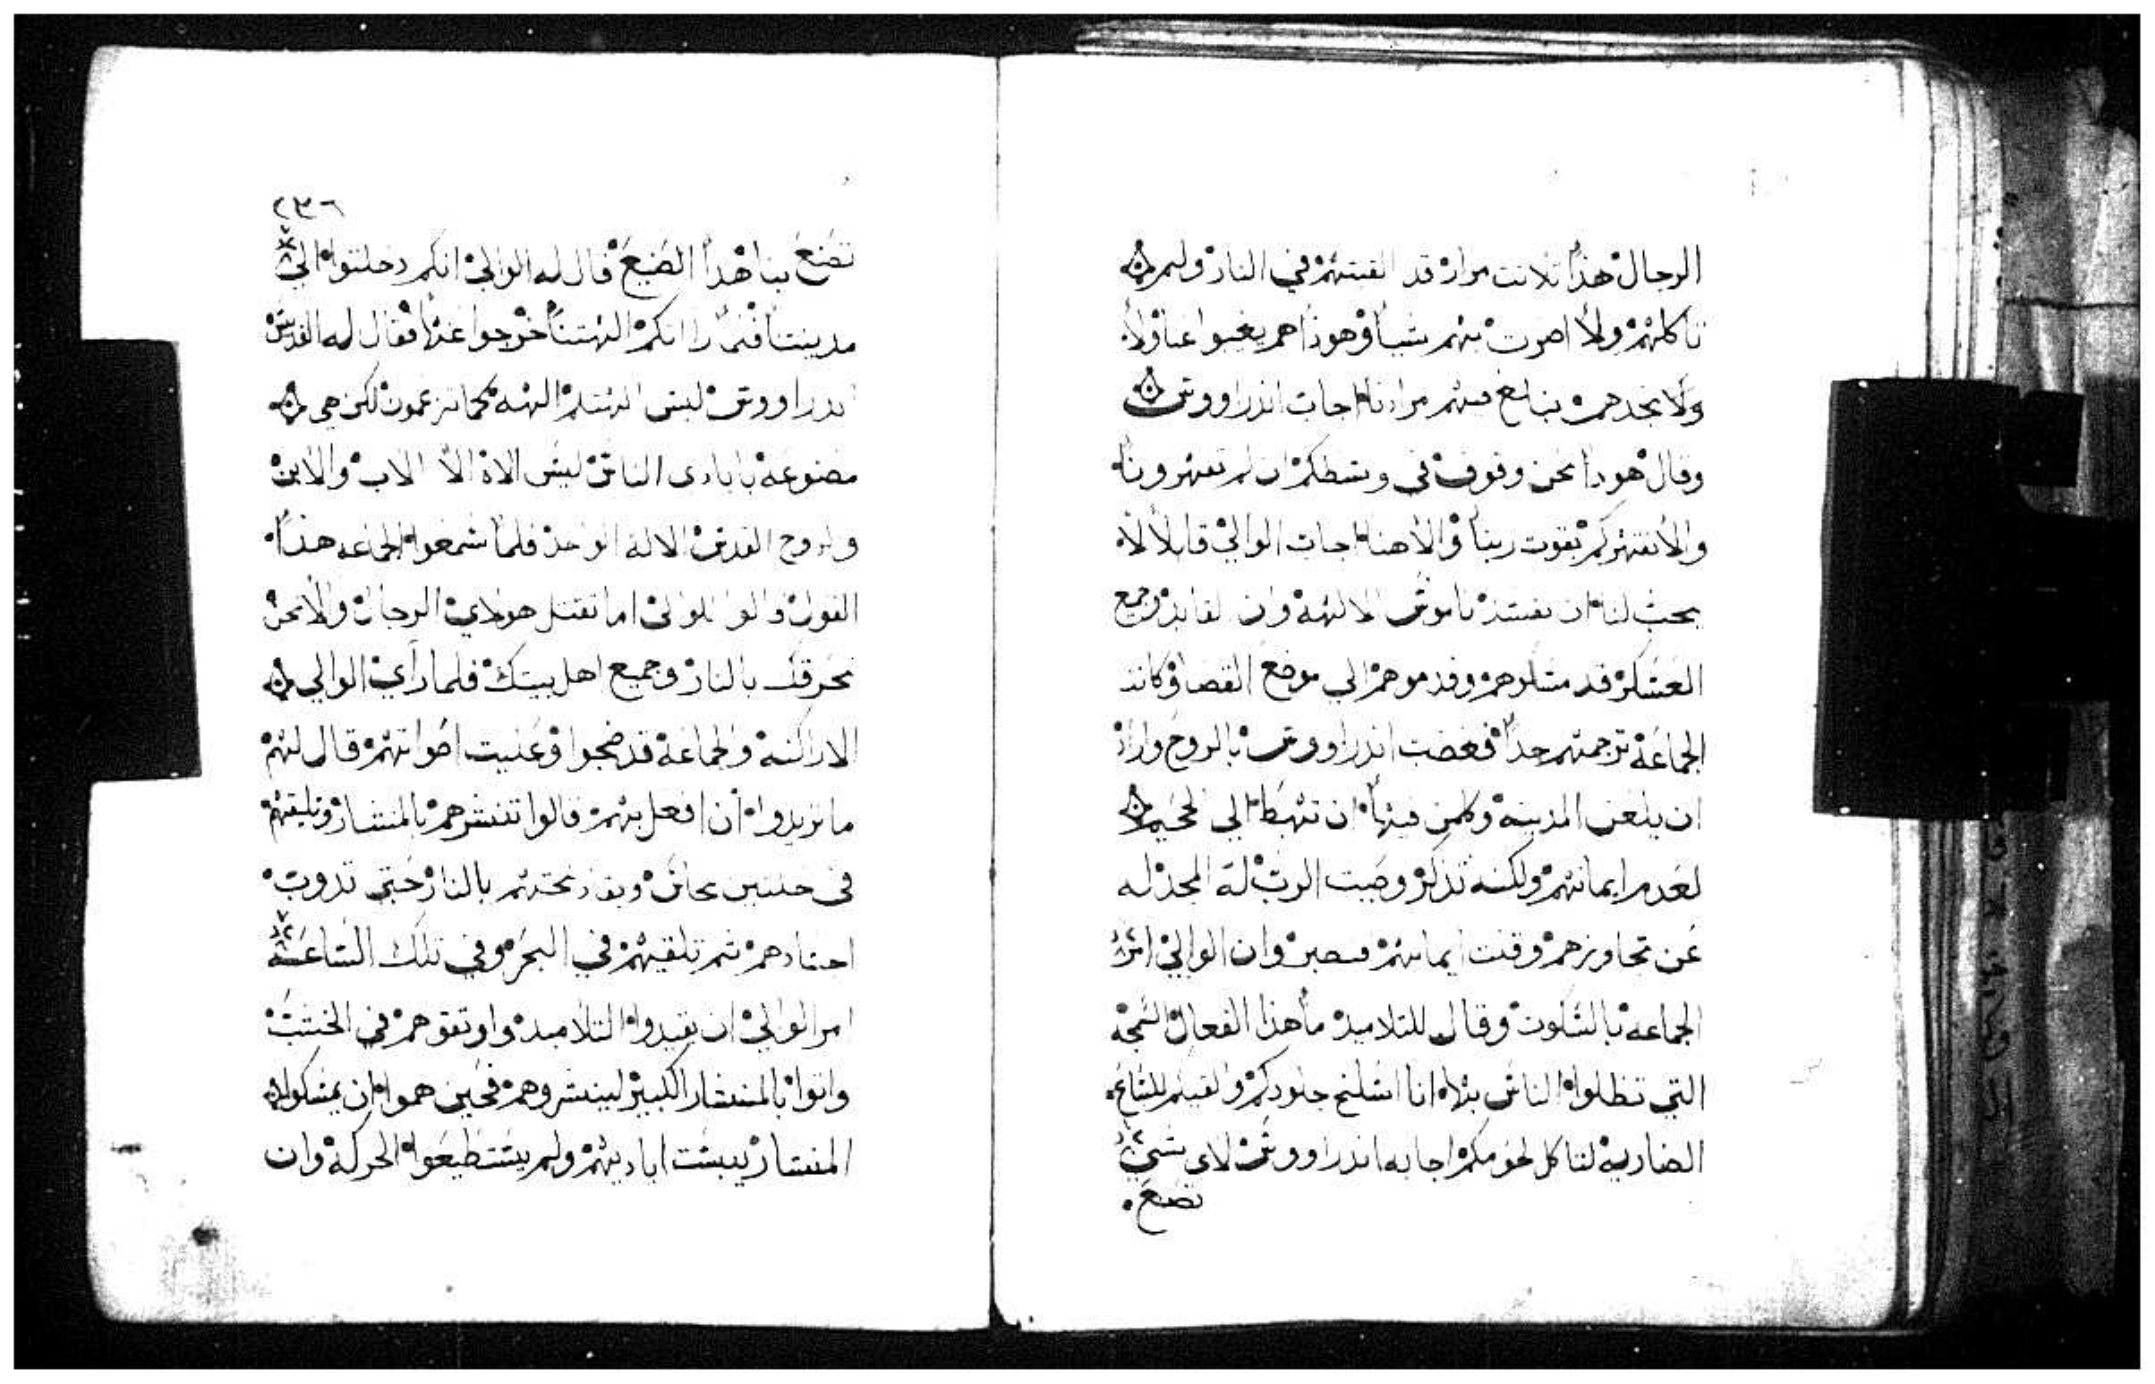 الرجال هذا ثلاثت مرار قد القيتهم في النار ولم
تاكلهم ولا اضرت بهم شيا وهوذا هم يغيبوا عنا ولا
ولا نجدهم نبلغ فيهم مرادنا اجاب اندراووس
وقال هوذا نحن وقوف في وسطكم ان لم تقهرونا
والا نقهركم بقوت ربنا والاهنا اجاب الوالي قايلا لا
يجب لنا ان نفسد ناموس الالهة وان القايد وجميع
العسكر قد مسكوهم وقدموهم الي موضع القضا وكانت
الجماعة ترجمهم جدا فغضب اندراووس بالروح واراد
ان يلعن المدينة وكلمن فيها ان تهبط الي الجحيم
لعدم ايمانهم ولكنه تذكر وصيت الرب له المجد له
عن تجاوزهم وقلت ايمانهم فصبر وان الوالي امر
الجماعة بالسكوت وقال للتلاميذ ما هذا الفعال السمجة
التي تظلوا الناس بها انا اسلخ جلودكم والقيكم للسباع
الضارية لتاكل لحومكم اجابه اندراووس لاي شي
تصنع
٢٣٦
تصنع بنا هذا الصنيع قال له الوالي انكم دخلتوا الي
مدينتنا فلما راتكم الهتنا خرجوا عنها فقال له القديس
اندراووس ليس الهتكم الهه كما تزعمون لكن هي
مصنوعة بايادي الناس ليس الاه الا الاب والابن
والروح القدس الاله الواحد فلما سمعوا الجماعه هذا
القول قالوا للوالي اما تقتل هولاي الرجال والا نحن
نحرقك بالنار وجميع اهل بيتك فلما راي الوالي
الاراكنه والجماعة قد ضجوا وعليت اصواتهم قال لهم
ما تريدوا ان افعل بهم قالوا تنشرهم بالمنشار وتلقيهم
في حلتين نحاس وتقد تحتهم بالنار حتي تدوب
اجسادهم ثم تلقيهم في البحر وفي تلك الساعة
امر الوالي ان يقيدوا التلاميد واوتقوهم في الخشب
واتوا بالمنشار الكبير لينشروهم فحين هموا ان يمسكوا
المنشار يبست اياديهم ولم يستطيعوا الحركة وان